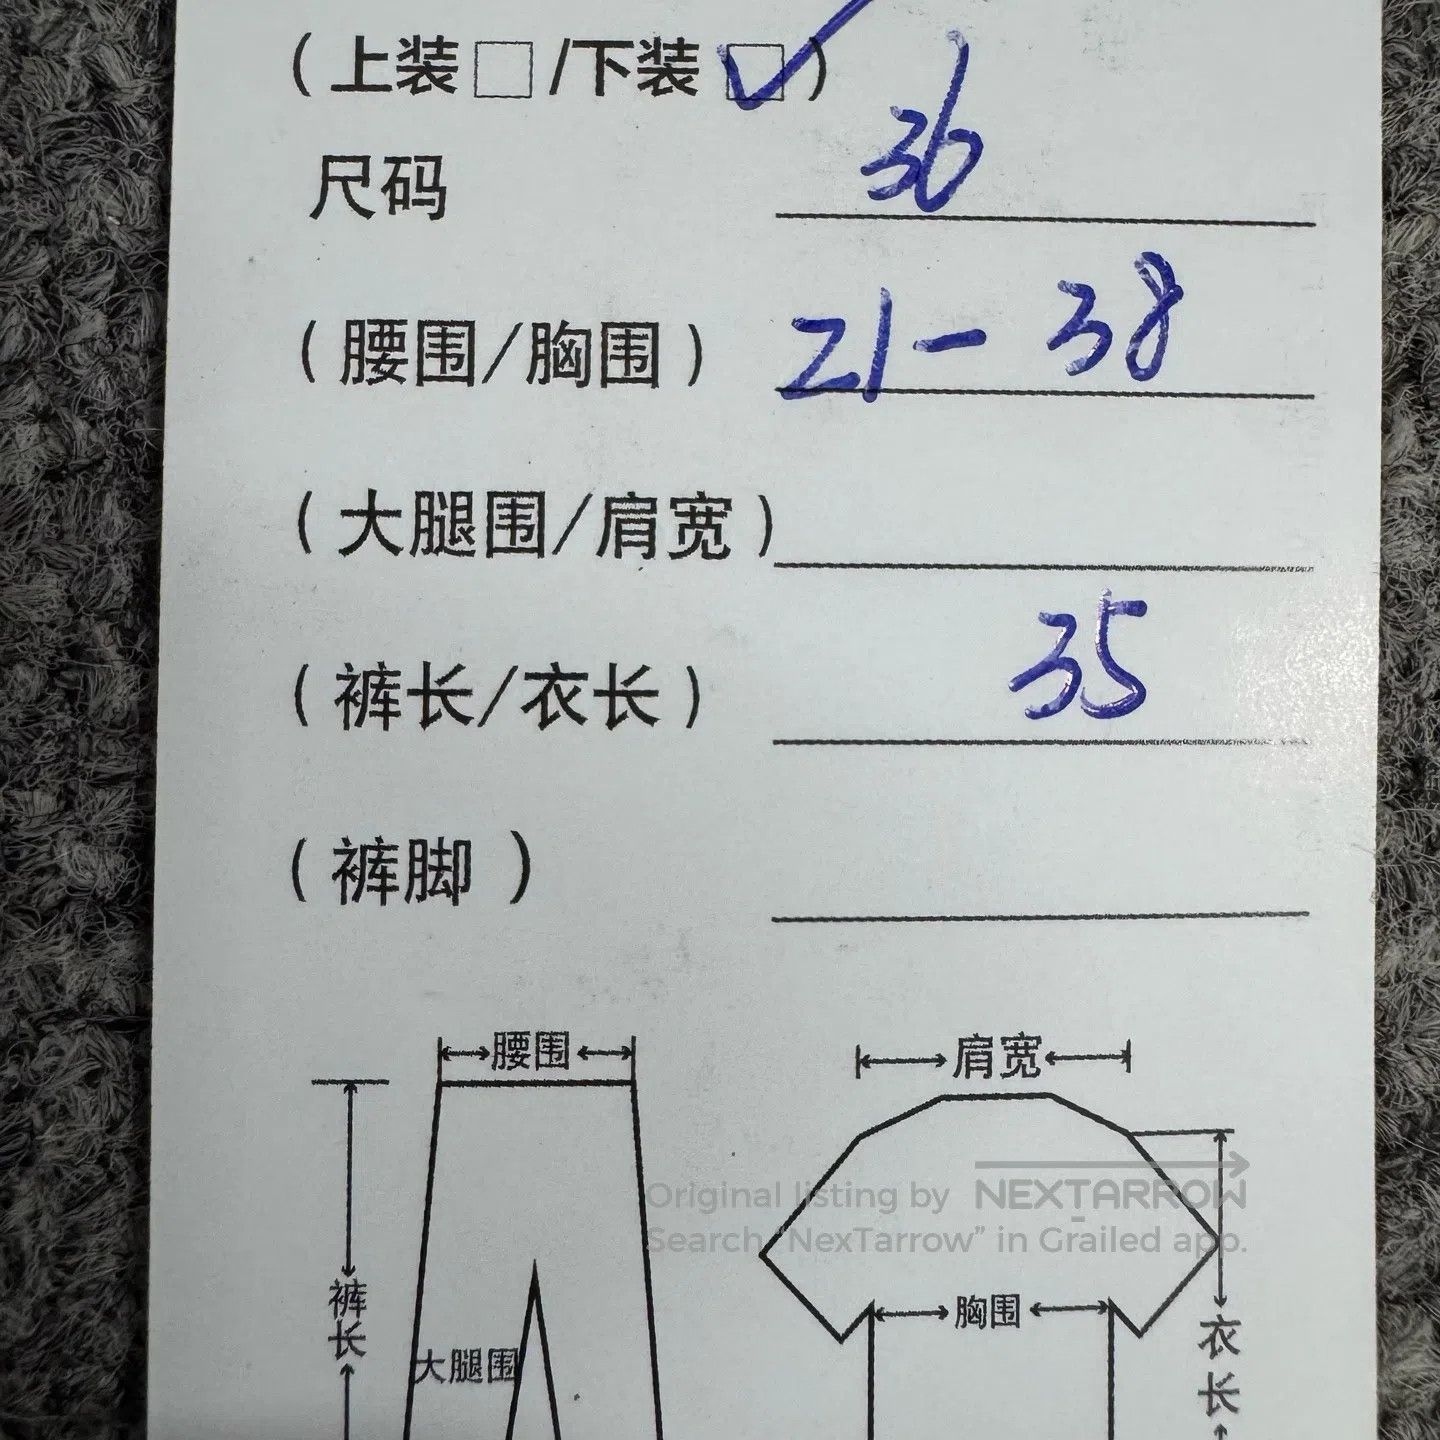 （上装□/下装☑）
尺码 36
（腰围/胸围） 21-38
（大腿围/肩宽）
（裤长/衣长） 35
（裤脚）
腰围
肩宽
裤长
大腿围
胸围
衣长
Original listing by NEXTARROW
Search "NexTarrow" in Grailed app.